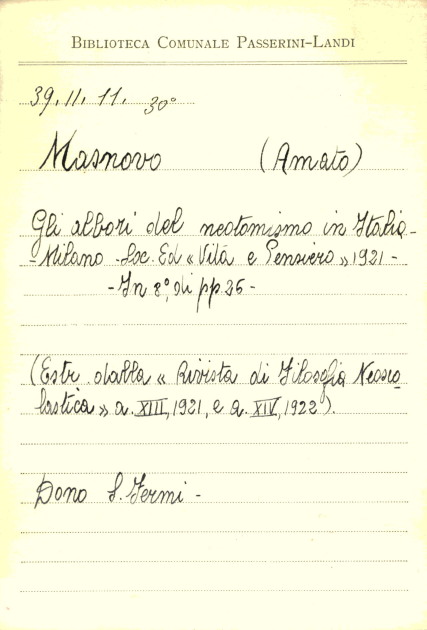 BIBLIOTECA COMUNALE PASSERINI-LANDI
39. II. 11. 30°
Masnovo (Amato)
Gli albori del neotomismo in Italia -
- Milano - Soc. Ed « Vita e Pensiero » 1921 -
- In 8°, di pp. 26 -
(Estr. dalla « Rivista di Filosofia Neosco
lastica » a. XIII, 1921, e a. XIV, 1922).
Dono S. Fermi -